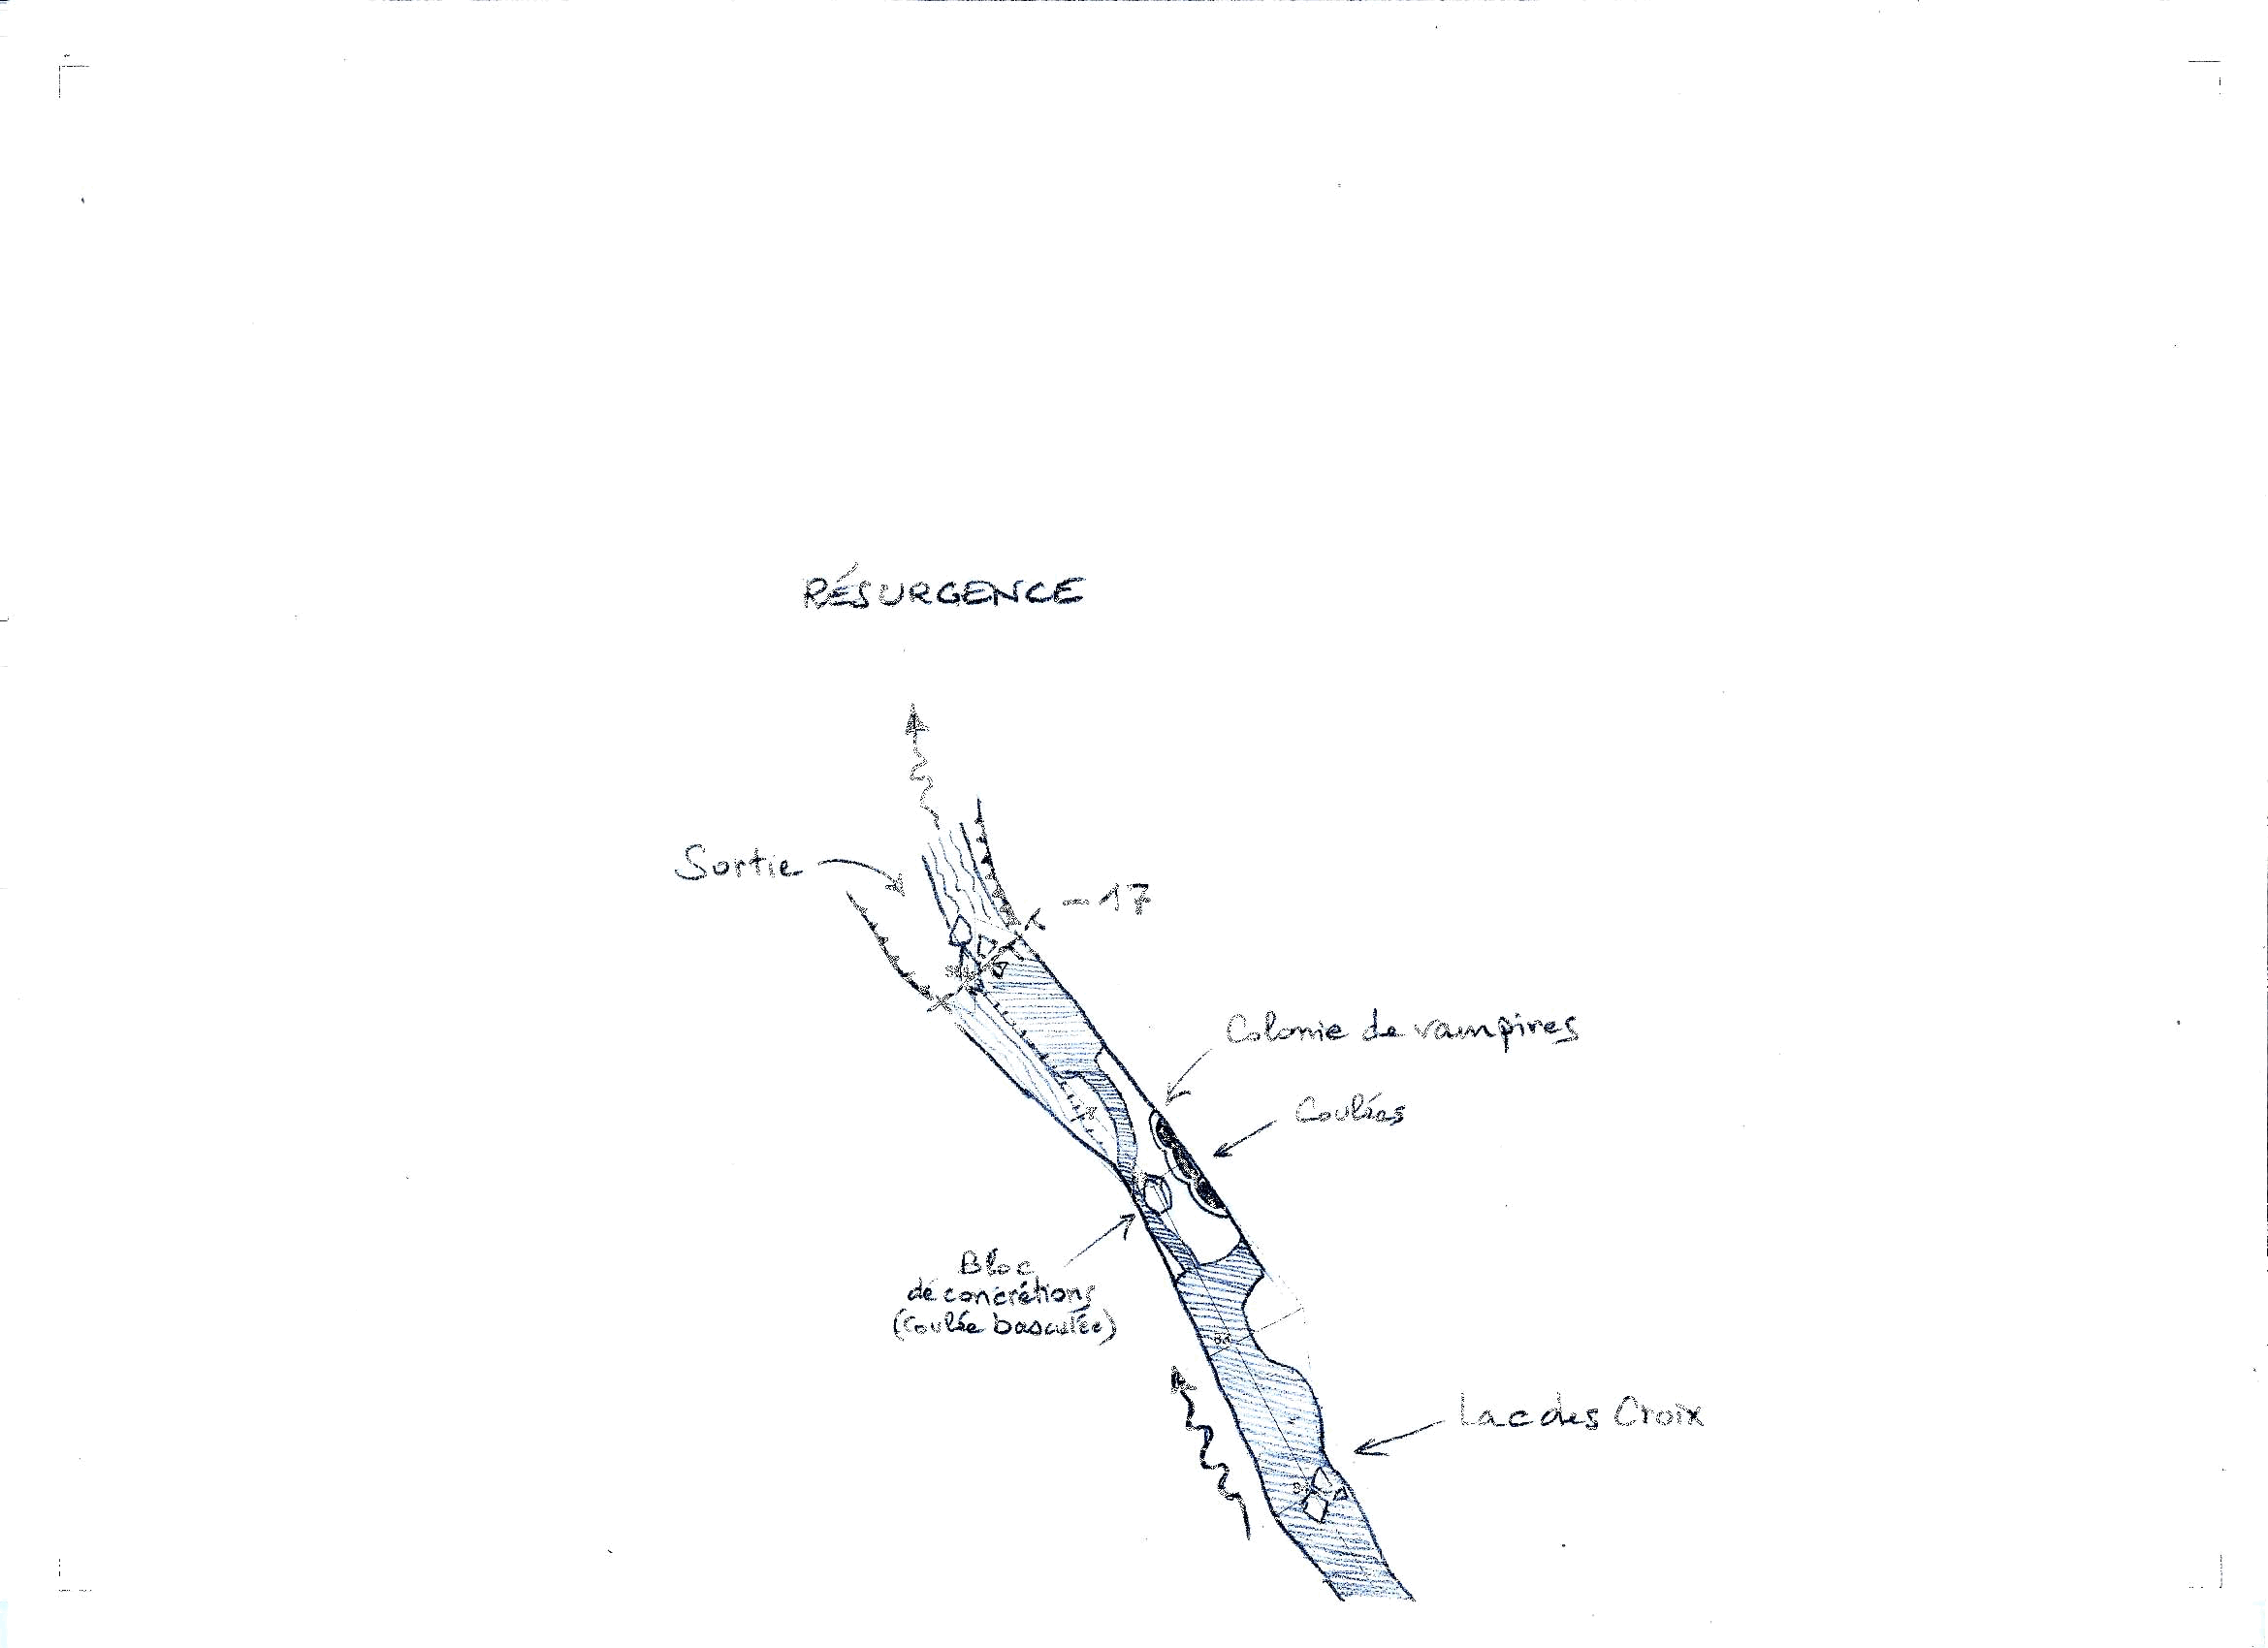 RÉSURGENCE
Sortie
-17
Colonie de vampires
Coulées
Bloc
de concrétions
(coulée basculée)
Lac des Croix